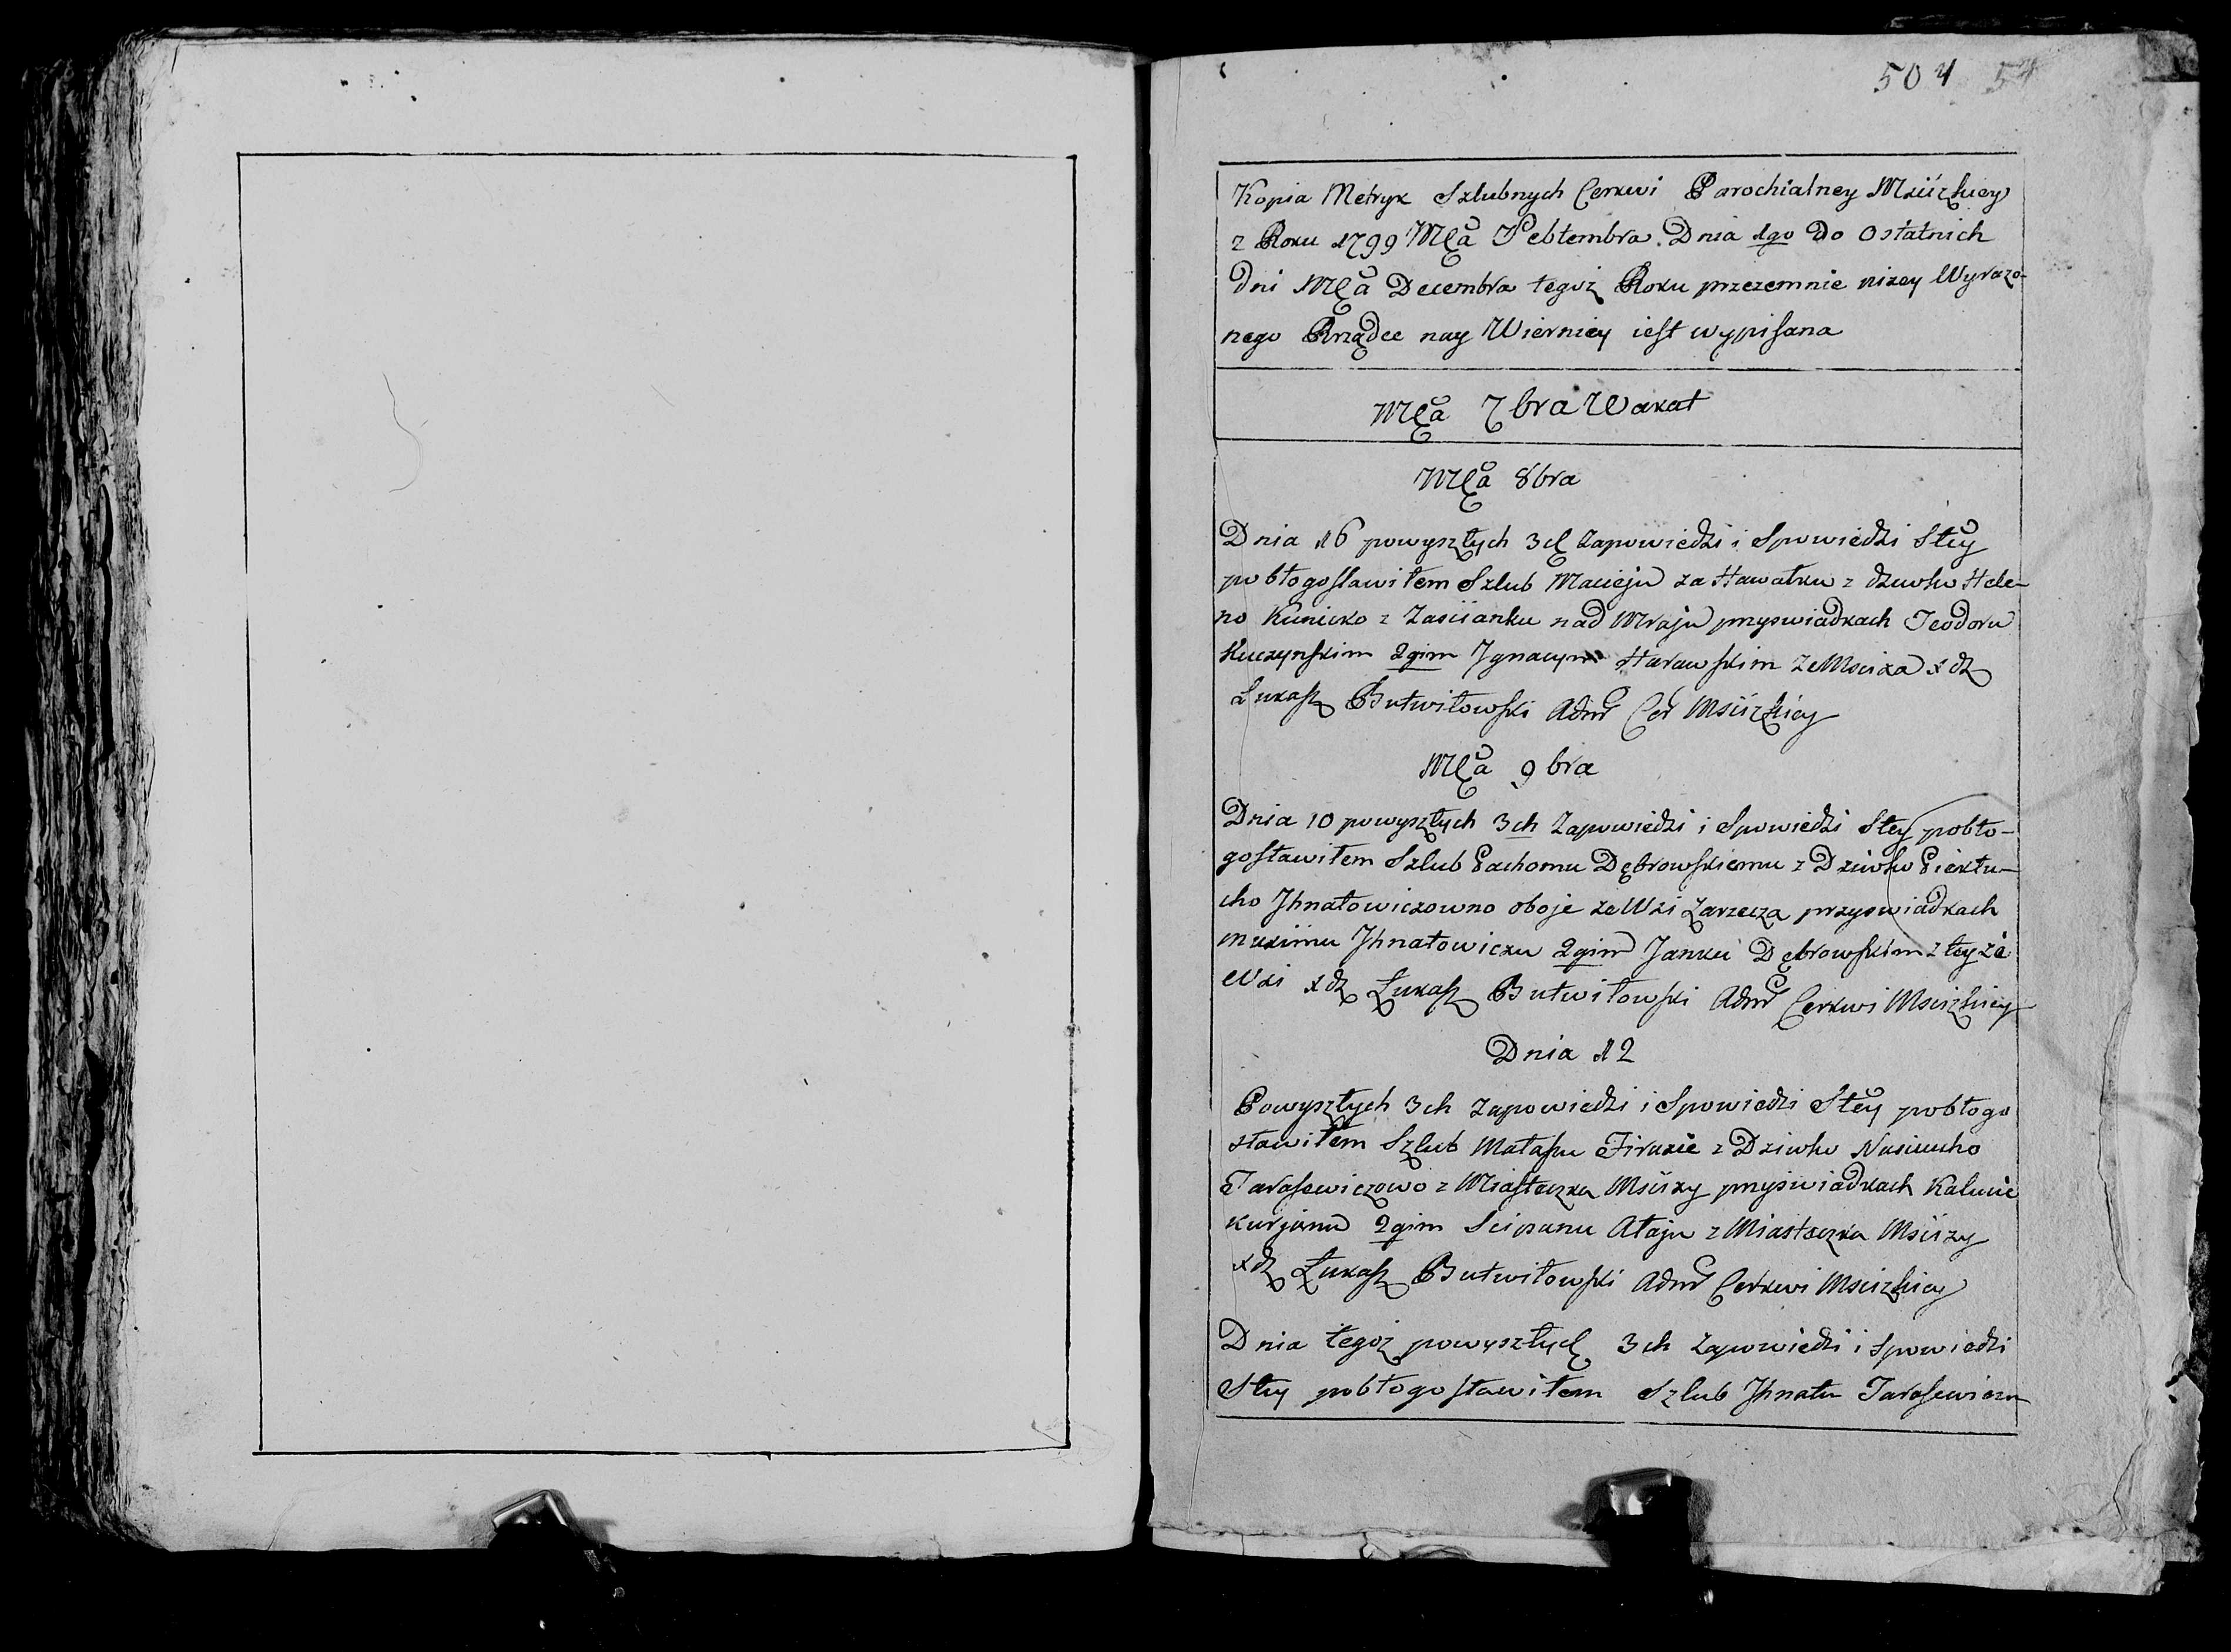 504 54
Kopia Metryk Szlubnych Cerkwi Parochialney Mściżkiey
z Roku 1799 Mca Septembra Dnia 1go Do Ostatnich
dni Mca Decembra tegoż Roku przezemnie niżey Wyrażo-
nego Rządce nay Wierniey iest wypisana
Mca 7bra Wakat
Mca 8bra
Dnia 16 powyszłych 3ch Zapowiedzi i Spowiedzi Stey
pobłogosławiłem Szlub Macieju z dziewko Hele-
no Kunicko z Zaścianku nad przyswiadkach Teodoru
Kuczynskim 2gim Ignacym Harawskim xdz
Łukasz Butwiłowski Admr Cer Mściżkiey
Mca 9bra
Dnia 10 powyszłych 3ch Zapowiedzi i Spowiedzi Stey pobło-
gosławiłem Szlub Pachomu Dębrowskiemu z Dziewko Piektu-
cho Ihnatowiczowno oboje ze Wsi Zarzecza przyswiadkach
Ihnatowiczu 2gim Janku Dębrowskim z teyże
Wsi xdz Łukasz Butwiłowski Admr Cerkwi Msciżkiey
Dnia 12
Powyszłych 3ch Zapowiedzi i Spowiedzi Stey pobłogo
sławiłem Szlub Matasu z Dziewko Nasciucho
Tarasewiczowo z Miasteczka Mściży przyswiadkach
Kurjanu 2gim Sciopanu Ataju z Miasteczka Mściży
xdz Łukasz Butwiłowski Admr Cerkwi Msciżkiey
Dnia tegoż powyszłych 3ch Zapowiedzi i spowiedzi
Stey pobłogosławiłem Szlub Ihnatu Tarasewiczu